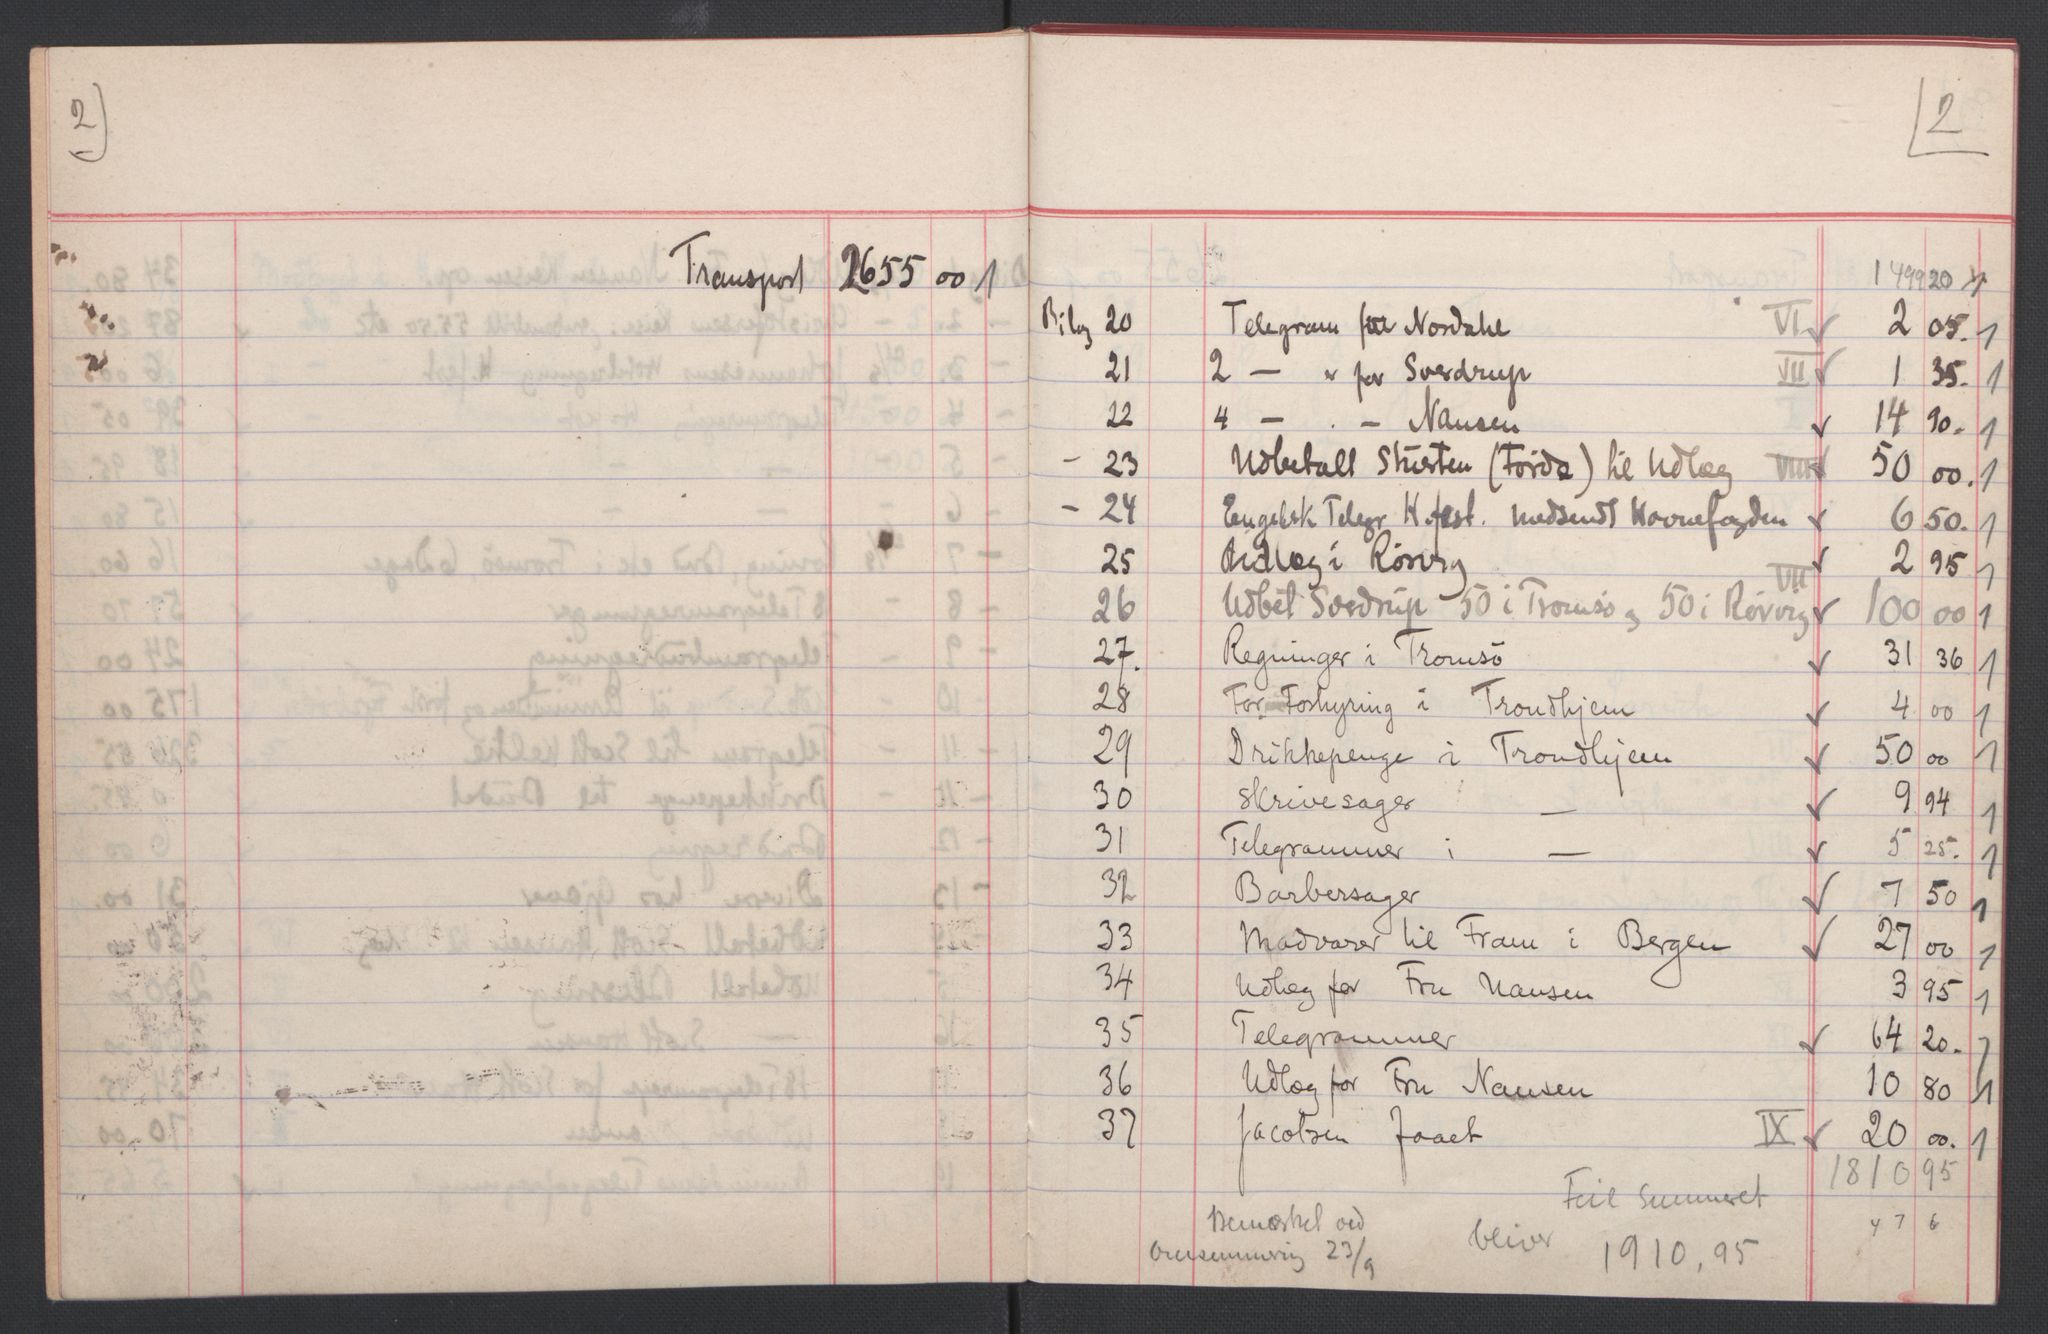 2)
Transport 2655 00
2
1499 20
Bilag 20 Telegram for Nordahl VI 2 05.
21 2 — " for Sverdrup VII 1 35.
22 4 — . — Nansen 14 90.
- 23 Udbetalt Sturten (Förde) til Udlæg VIII 50 00.
- 24 Engelsk Telegr H.fest. medsendt Havnefogden 6 50.
25 Udlæg i Rörvig 2 95
26 Udbet Sverdrup 50 i Tromsö og 50 i Rörvig VII 100 00
27. Regninger i Tromsö 31 36
28 For Forhyring i Trondhjem 4 00
29 Drikkepenge i Trondhjem 50 00
30 Skrivesager — 9 94
31 Telegrammer i — 5 25.
32 Barbersager 7 50
33 Madvarer til Fram i Bergen 27 00
34 Udlæg for Fru Nansen 3 95
35 Telegrammer 64 20.
36 Udlæg for Fru Nansen 10 80
37 Jacobsen IX 20 00.
1810 95
Feil summeret
4 7 6
Bemærket ved
bliver 1910,95
Omsummering 23/9